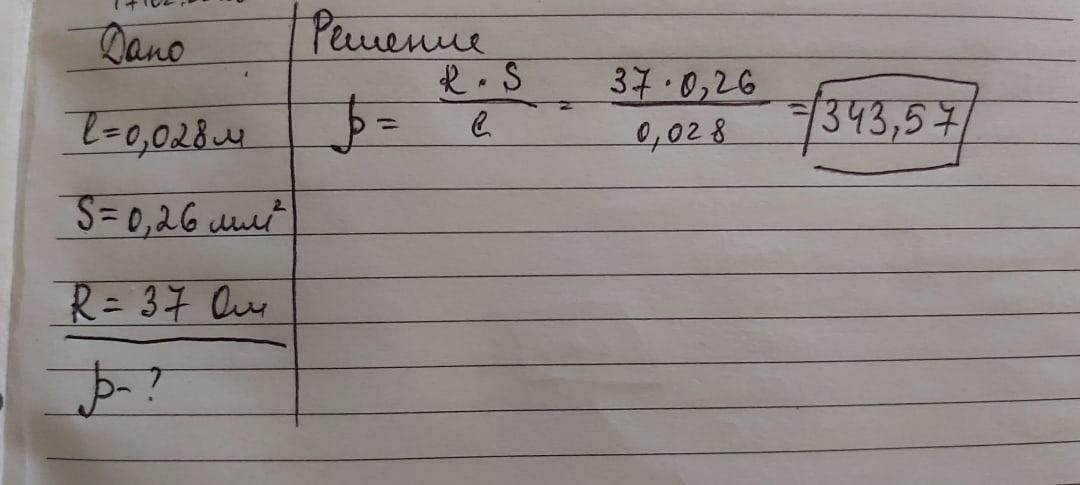 Дано
l=0,028м
S=0,26 мм²
R = 37 Ом
ρ-?
Решение
ρ = R · S / l = 37 · 0,26 / 0,028 = 343,57